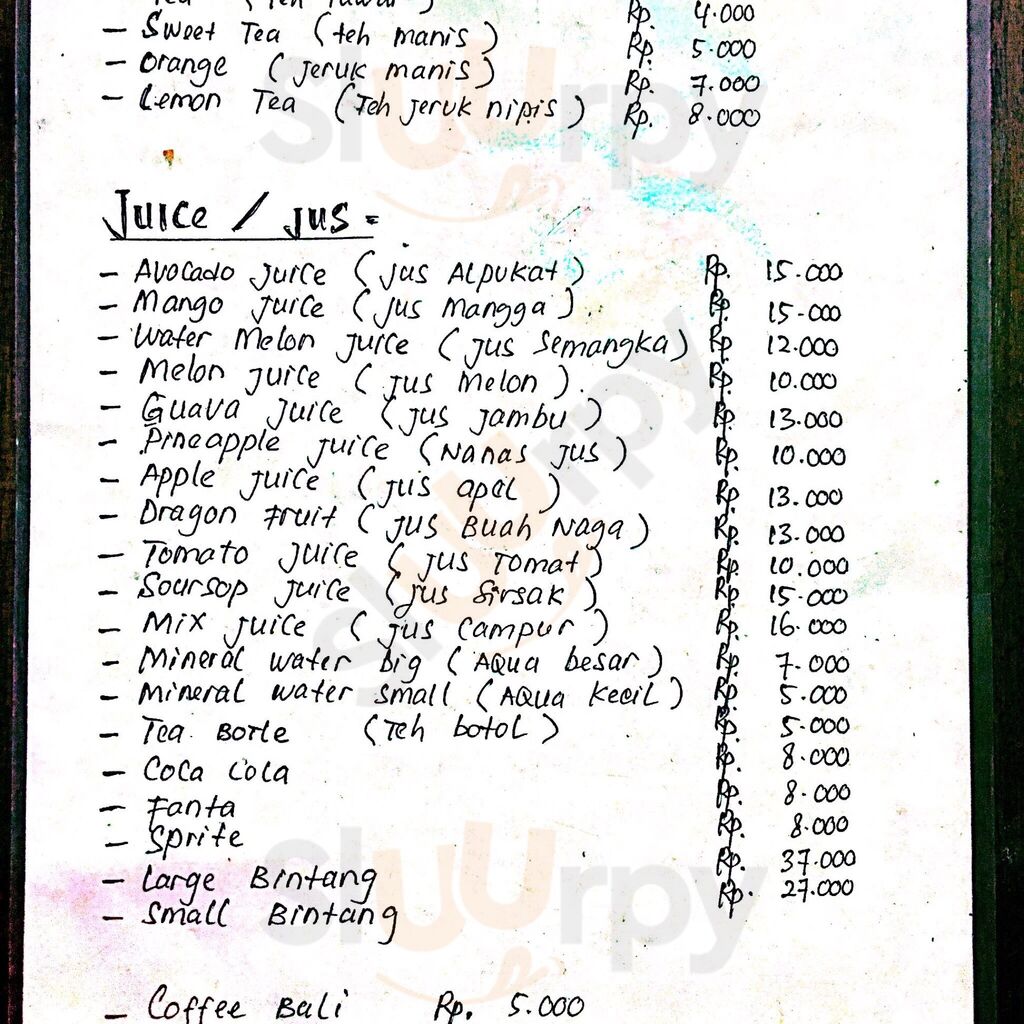 Rp. 4.000
- Sweet Tea (teh manis) Rp. 5.000
- Orange (Jeruk manis) Rp. 7.000
- Lemon Tea (Teh Jeruk nipis) Rp. 8.000
Juice / Jus =
- Avocado Juice (Jus Alpukat) Rp. 15.000
- Mango Juice (Jus Mangga). Rp. 15-000
- Water Melon Juice (Jus Semangka) Rp. 12.000
- Melon Juice (Jus Melon). Rp. 10.000
- Guava Juice (Jus Jambu) Rp. 13.000
- Pineapple Juice (Nanas Jus) Rp. 10.000
- Apple Juice (Jus apel) Rp. 13.000
- Dragon Fruit (Jus Buah Naga) Rp. 13.000
- Tomato Juice (Jus Tomat) Rp. 10.000
- Soursop Juice (Jus Sirsak) Rp. 15.000
- Mix Juice (Jus Campur) Rp. 16.000
- Mineral water big (AQUA besar) Rp. 7.000
- Mineral water small (AQUA kecil) Rp. 5.000
- Tea Botle (Teh botol) Rp. 5.000
- Coca Cola Rp. 8.000
- Fanta Rp. 8.000
- Sprite Rp. 8.000
- Large Bintang Rp. 37.000
- Small Bintang Rp. 27.000
- Coffee Bali Rp. 5.000
Sluurpy
Sluurpy
Sluurpy